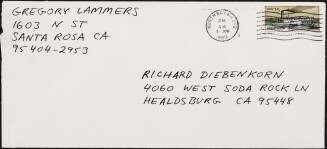 GREGORY LAMMERS
1603 N ST
SANTA ROSA CA
95404-2953
RICHARD DIEBENKORN
4060 WEST SODA ROCK LN
HEALDSBURG CA 95448